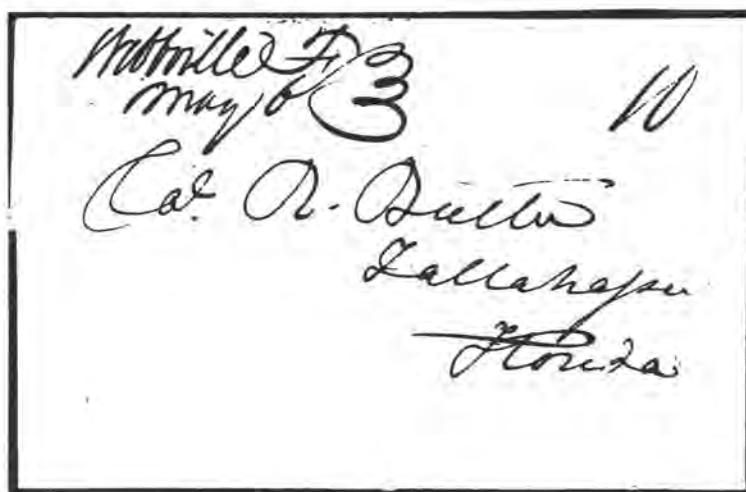 Webbville F
May 6
10
Col. R. Butler
Tallahassee
Florida